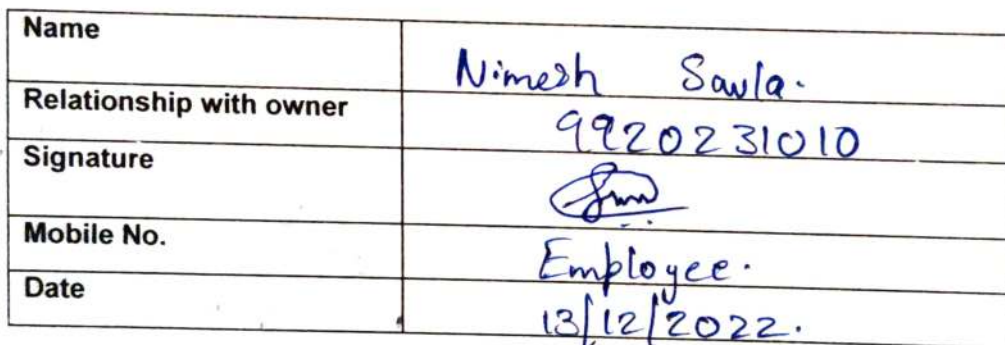 Name Nimesh Savla.
Relationship with owner 9920231010
Signature
Mobile No. Employee.
Date 13/12/2022.